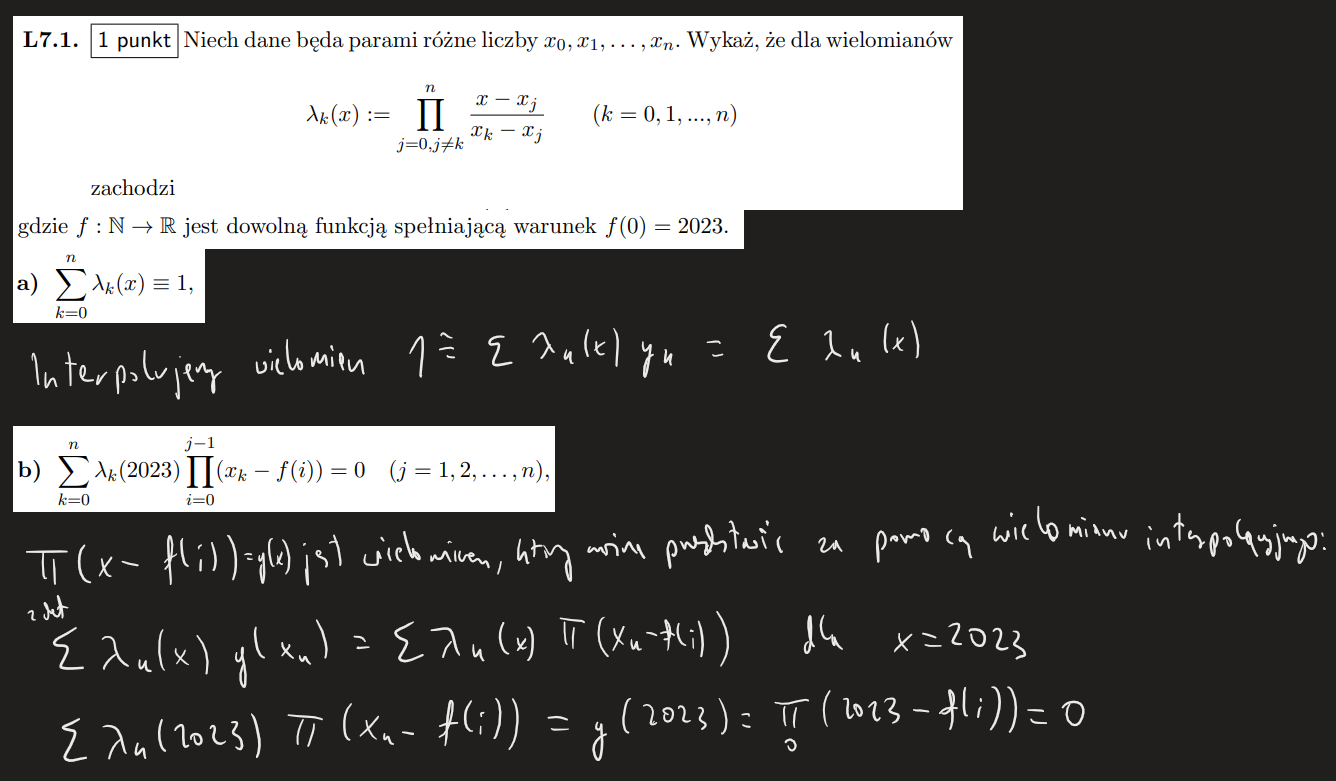 L7.1. 1 punkt Niech dane będa parami różne liczby x₀, x₁, . . . , xₙ. Wykaż, że dla wielomianów
λₖ(x) := ∏_{j=0,j≠k}^{n} (x − xⱼ)/(xₖ − xⱼ) (k = 0, 1, ..., n)
zachodzi
gdzie f : ℕ → ℝ jest dowolną funkcją spełniającą warunek f(0) = 2023.
a) ∑_{k=0}^{n} λₖ(x) ≡ 1,
Interpolujemy wielomian 1 ≡ Σ λₖ(x) yₖ = Σ λₖ(x)
b) ∑_{k=0}^{n} λₖ(2023) ∏_{i=0}^{j−1} (xₖ − f(i)) = 0 (j = 1, 2, . . . , n),
Π(x − f(i)) = y(x) jest wielomianem, który można przedstawić za pomocą wielomianu interpolacyjnego:
zatem
Σ λₖ(x) y(xₖ) = Σ λₖ(x) Π(xₖ − f(i)) dla x = 2023
Σ λₖ(2023) Π(xₖ − f(i)) = y(2023) = Π₀(2023 − f(i)) = 0